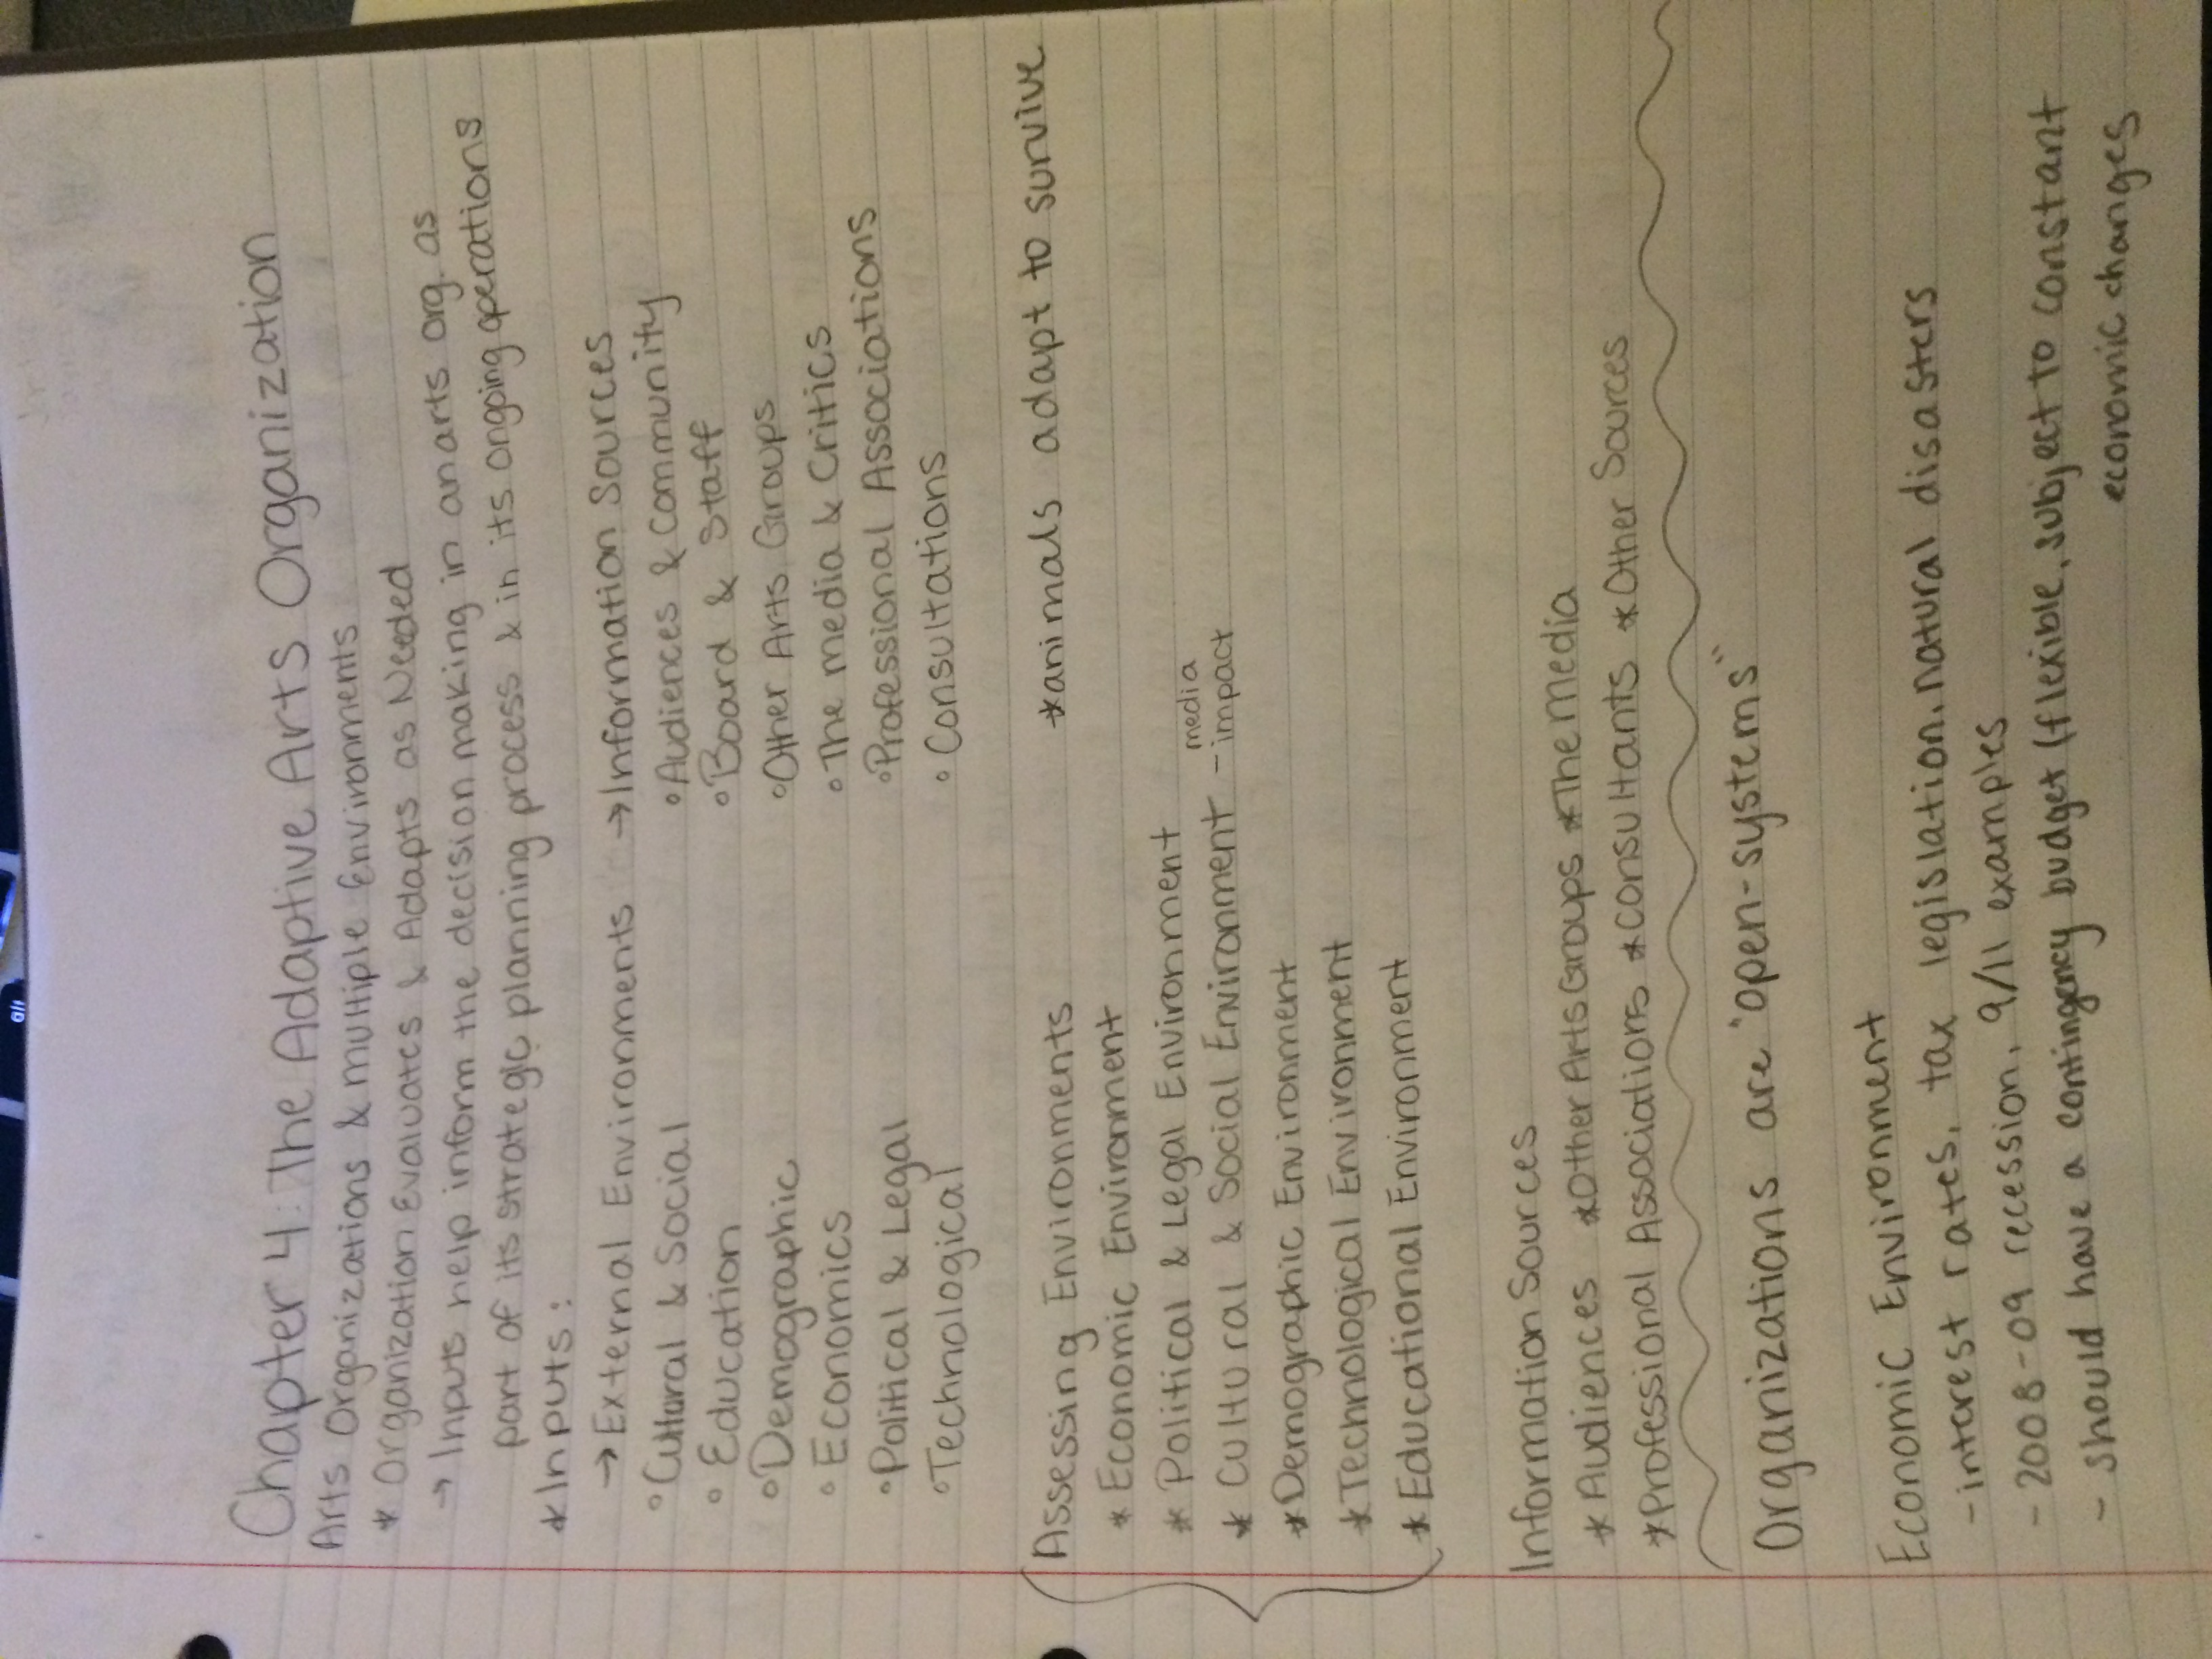 Chapter 4: The Adaptive Arts Organization
Arts Organizations & Multiple Environments
* Organization Evaluates & Adapts as Needed
→ Inputs help inform the decision making in an arts org. as
part of its strategic planning process & in its ongoing operations
* Inputs:
→ External Environments → Information Sources
° Cultural & Social ° Audiences & Community
° Education ° Board & Staff
° Demographic ° Other Arts Groups
° Economics ° The Media & Critics
° Political & Legal ° Professional Associations
° Technological ° Consultations
Assessing Environments *animals adapt to survive
* Economic Environment
* Political & Legal Environment
* Cultural & Social Environment - media impact
* Demographic Environment
* Technological Environment
* Educational Environment
Information Sources
* Audiences *Other Arts Groups *The Media
*Professional Associations *Consultants *Other Sources
Organizations are "open-systems"
Economic Environment
- interest rates, tax legislation, natural disasters
- 2008-09 recession, 9/11 examples
- should have a contingency budget (flexible, subject to constant
economic changes